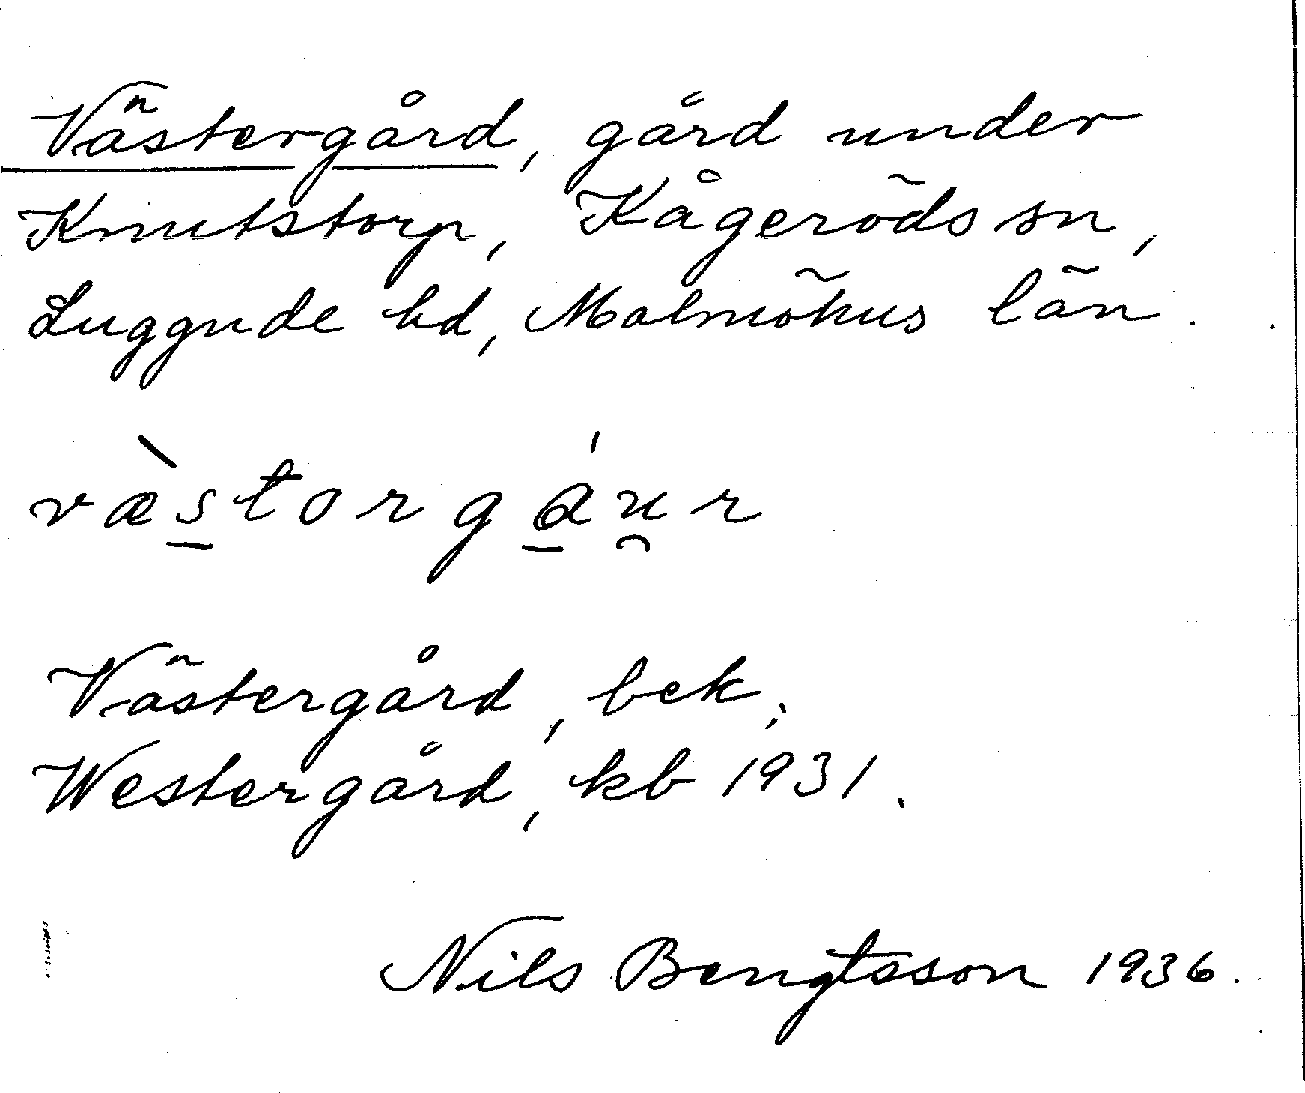 Västergård, gård under
Knutstorp, Kågeröds sn,
Luggude hd, Malmöhus län.
væ̀s̠torgá̠u̯r
Västergård, bek.;
Westergård, kb 1931.
Nils Bengtsson 1936.